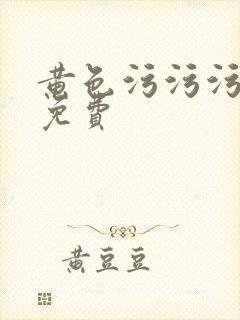 黄色污污污
免費
黄豆豆